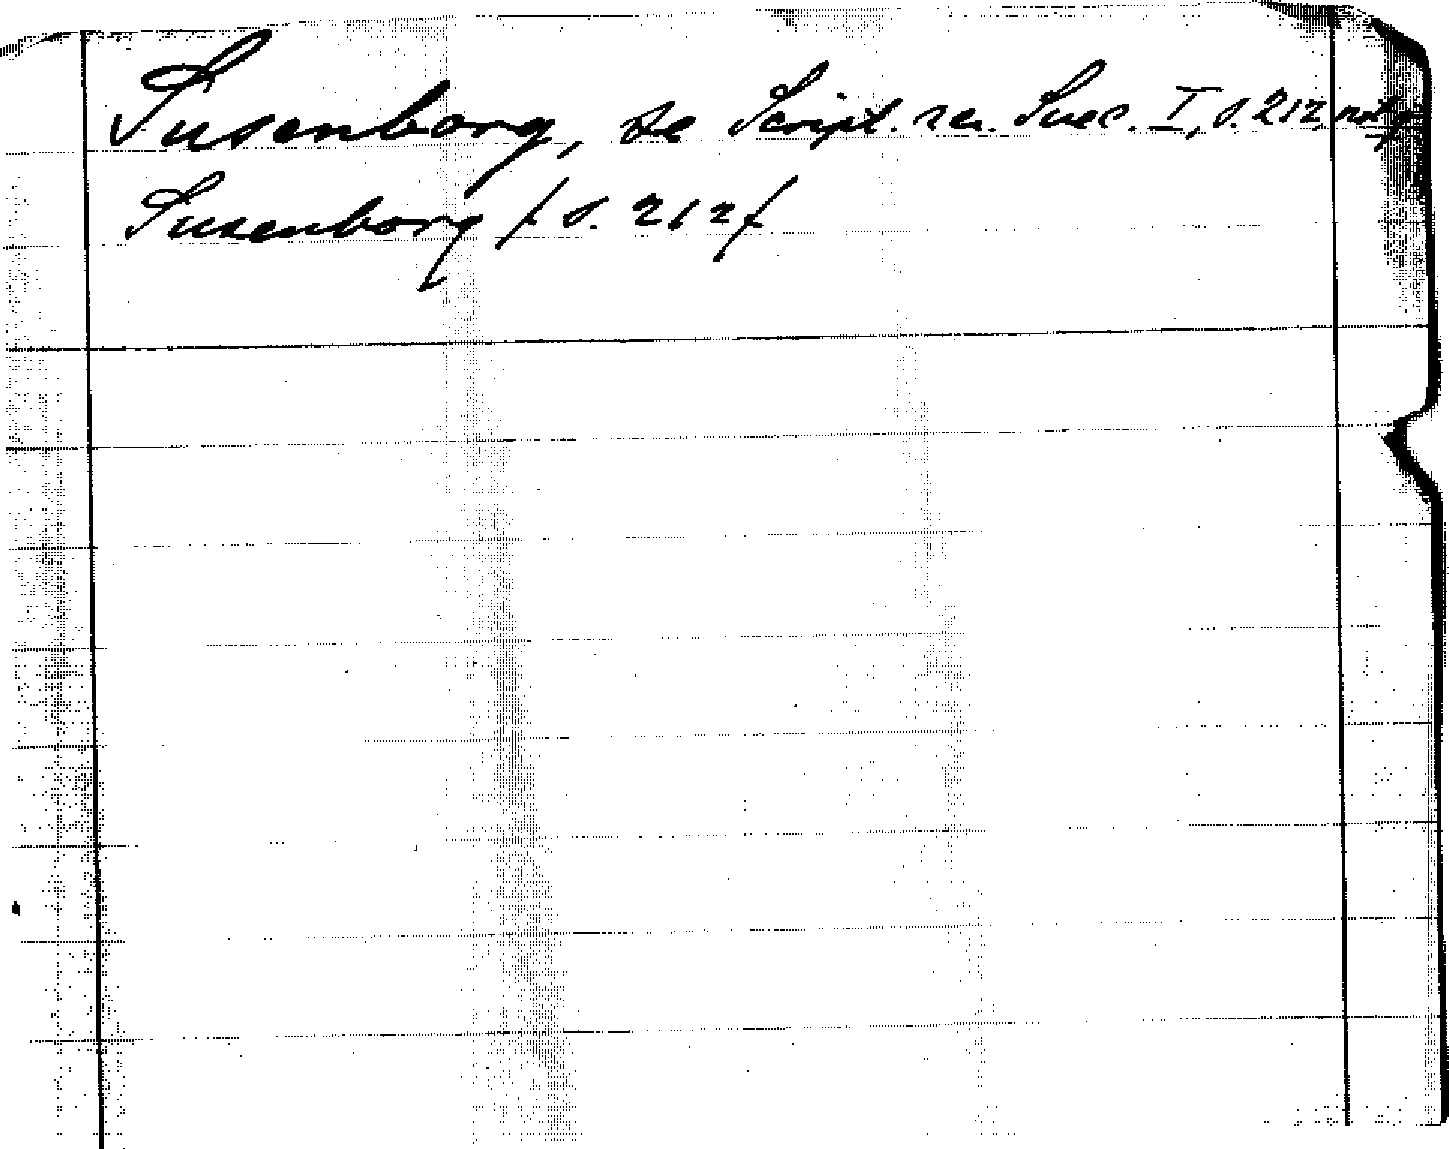 Susenborg, se Script. rer. Suec. I, s. 212, not
Susenborg /s. 212/